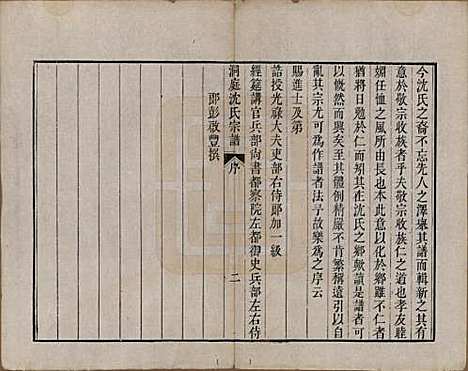 今沈氏之裔不忘先人之澤舉其譜而輯新之其有
意於敬宗收族者乎夫敬宗收族仁之道也孝友睦
婣任恤之風所由長也本此意以化於鄉雖不仁者
猶將日勉於仁而矧其在沈氏之鄉歟讀是譜者可
以慨然而興矣至其體例精嚴不肯繁稱遠引以自
亂其宗尤可為作譜者法予故樂為之序云
賜進士及第
誥授光祿大夫吏部右侍郎加一級
經筵講官兵部尚書都察院左都御史兵部左右侍
洞庭沈氏宗譜 序 二
郎彭啟豐撰